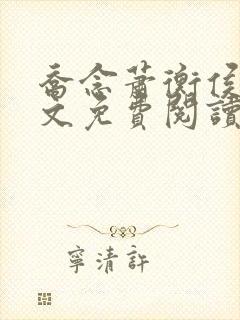 喬念蕭衡侯
文免費閱讀
寧清許